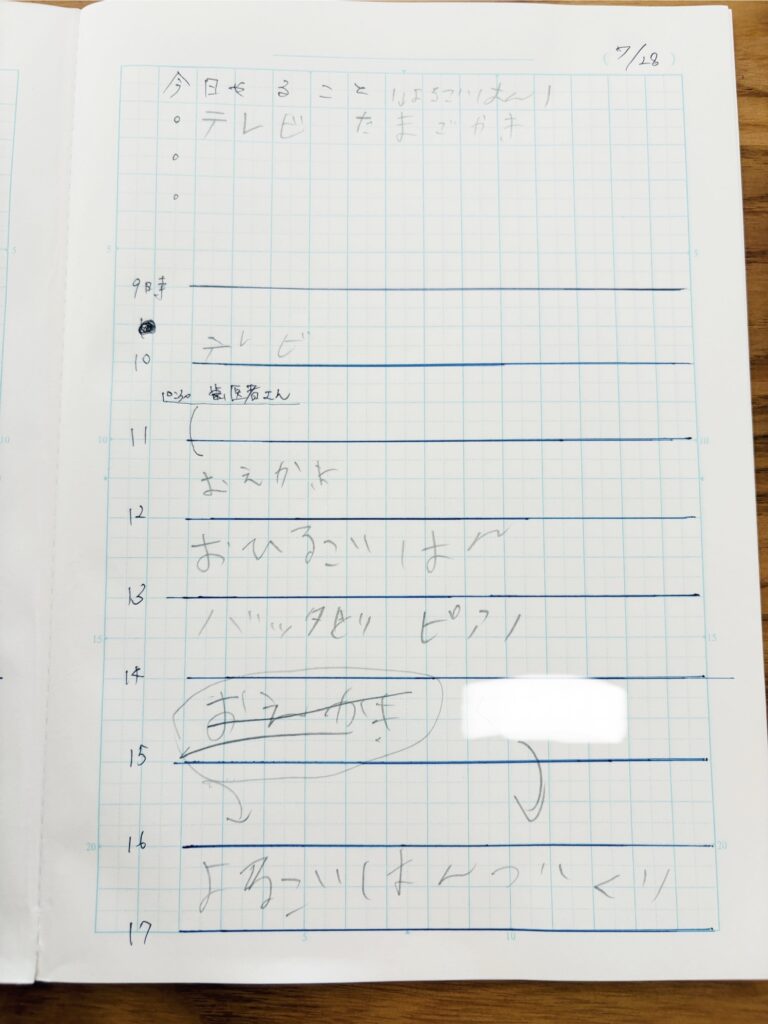 7/28
今日やること よるごはん
○ テレビ たまごかき
○
○
9時
テレビ
10
10:30 歯医者さん
11
おえかき
12
おひるごはん
13
バッタとり ピアノ
14
おえかき
15
16
よるごはんづくり
17